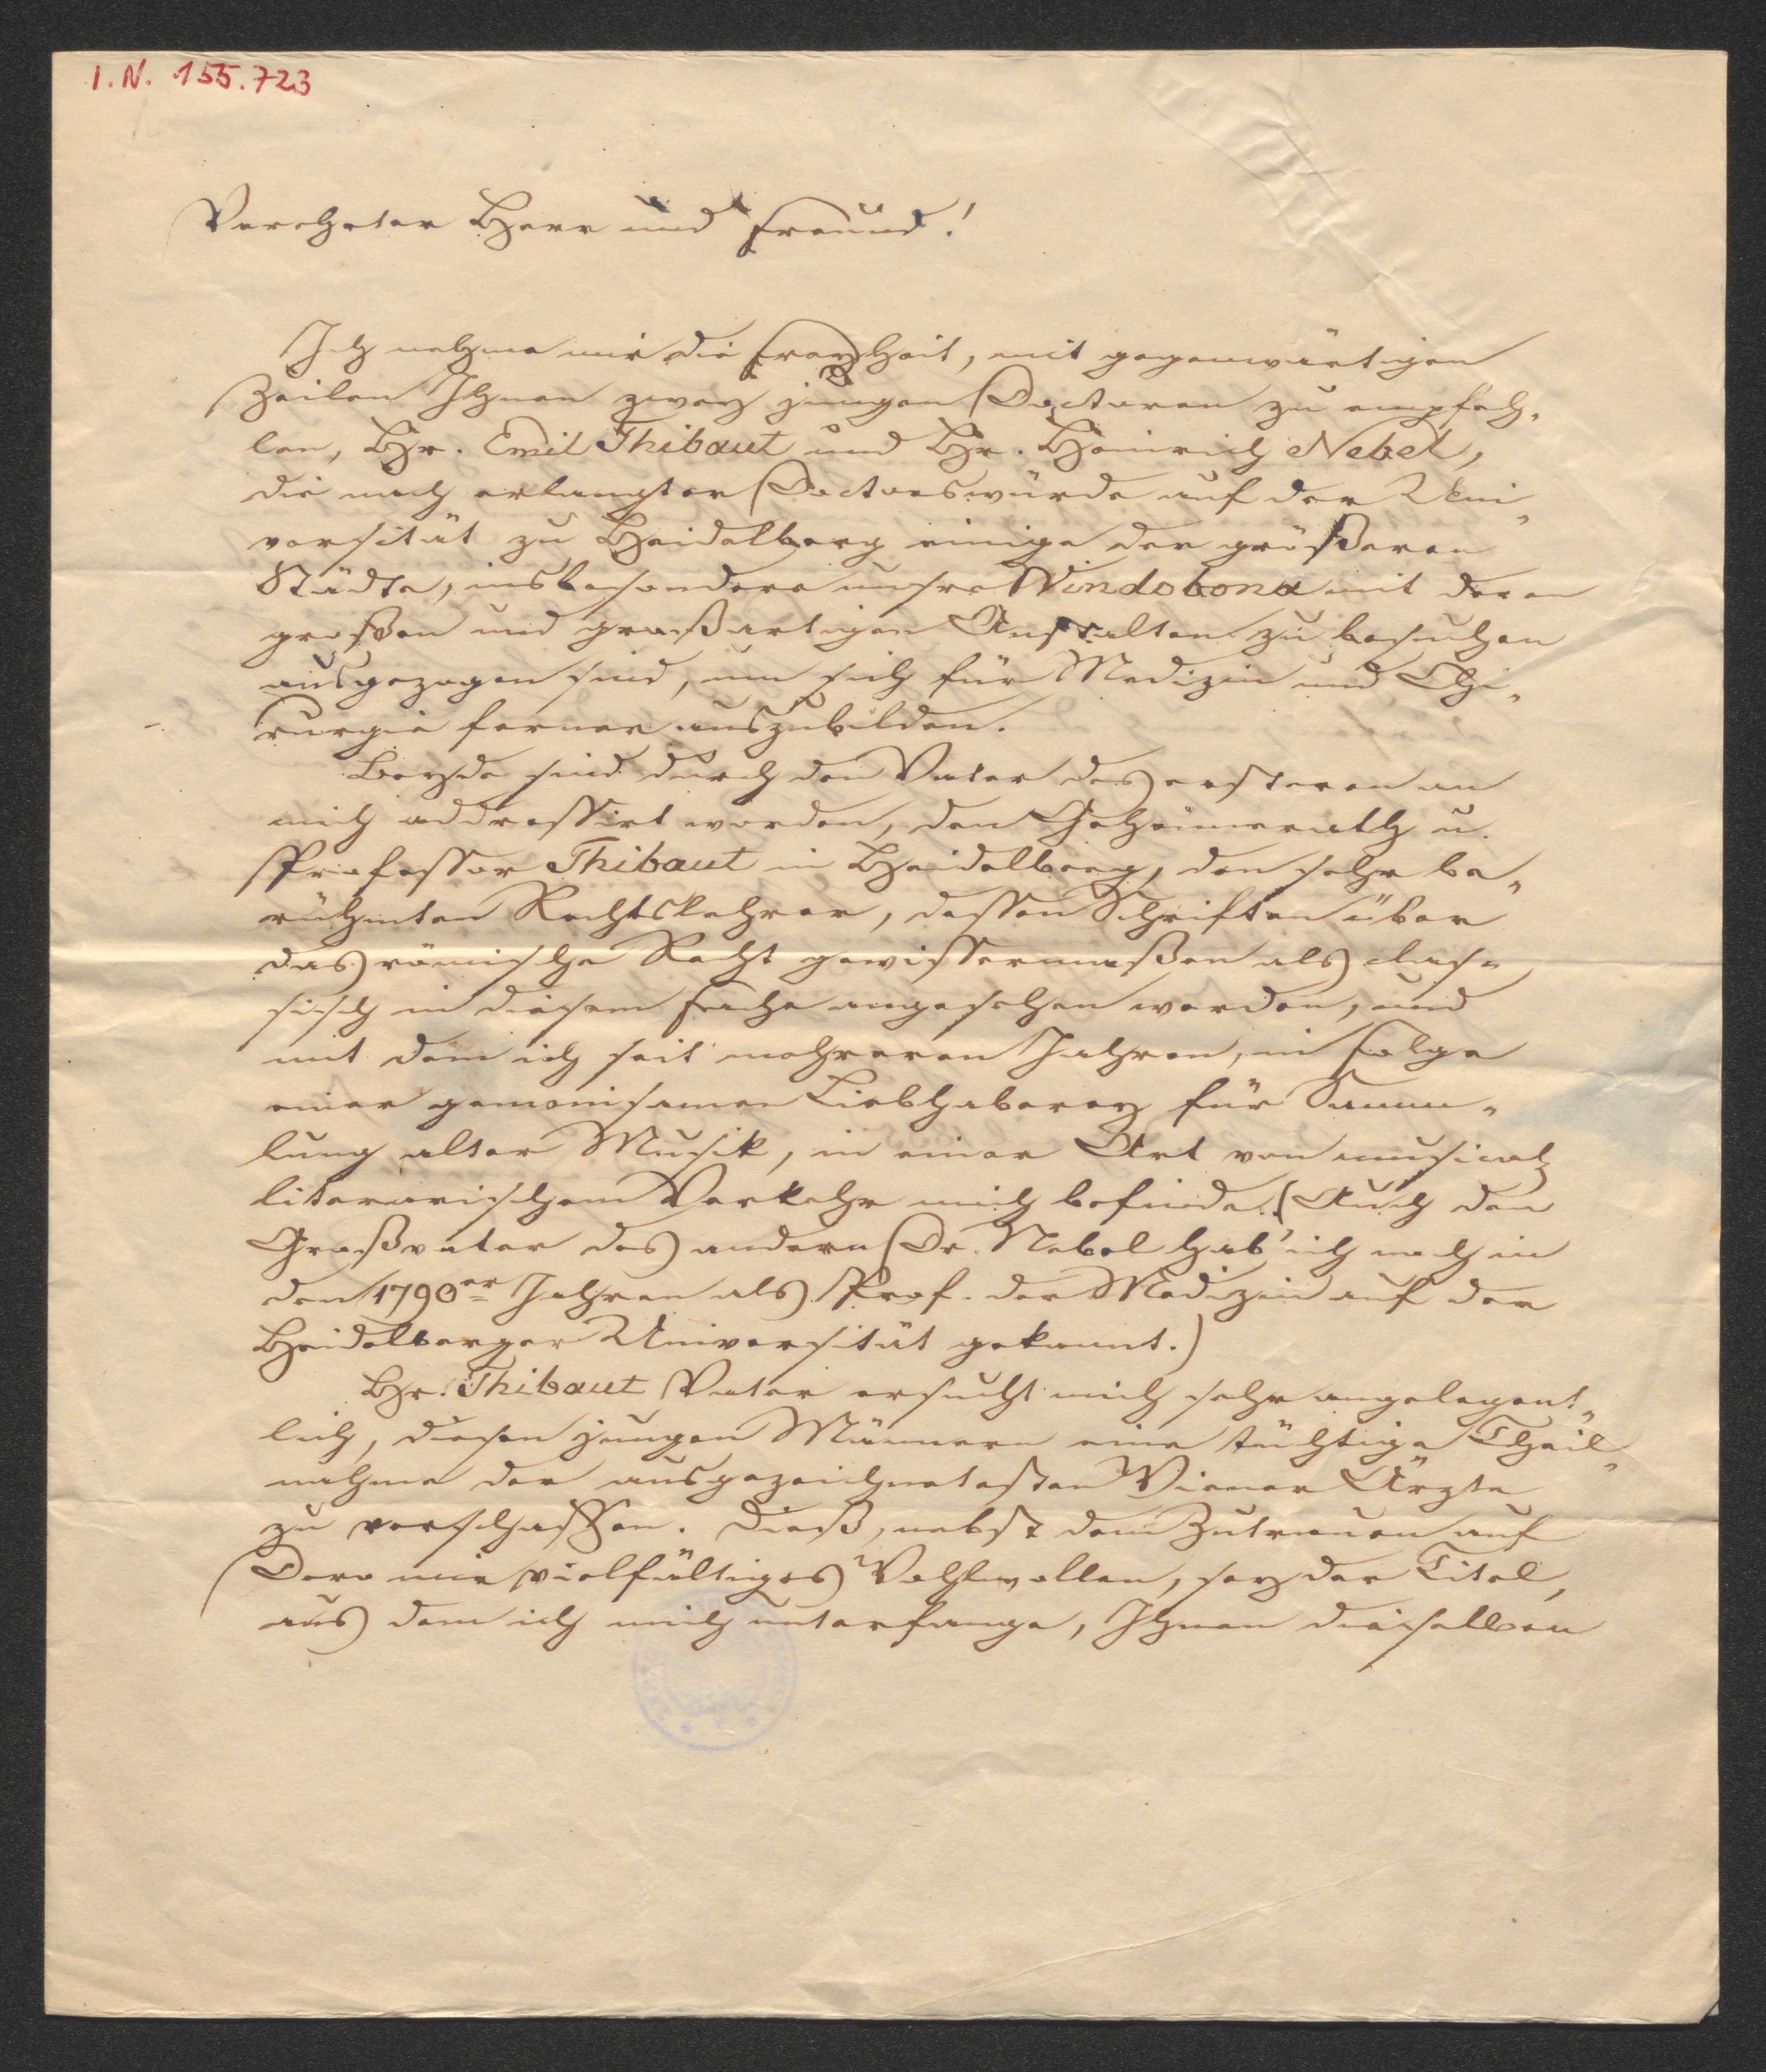 I.N. 155.723
Verehrter Herr und Freund!
Ich nehme mir die Freyheit, mit gegenwärtigen
Zeilen Ihnen zwey jungen Doctoren zu empfeh„
len, Hr. Emil Thibaut und Hr. Heinrich Nebel,
die nach erlangter Doctorswürde auf der Uni„
versität zu Heidelberg einige der größeren
Städte, insbesondere unsre Vindobona mit deren
großen und großartigen Anstalten zu besuchen
ausgezogen sind, um sich für Medizin und Chi„
rurgie ferner auszubilden.
Beyde sind durch den Vater des ersteren an
mich addressirt worden, den Geheimerath u.
Professor Thibaut in Heidelberg, den sehr be„
rühmten Rechtslehrer, dessen Schriften über
das römische Recht gewissermaßen als clas„
sisch in diesem Fache angesehen werden, und
mit dem ich seit mehreren Jahren, in Folge
einer gemeinsamen Liebhaberey für Samm„
lung alter Musik, in einer Art von musical.
literarischem Verkehr mich befinde. (Auch den
Großvater des andern Dr. Nebel hab' ich noch in
den 1790er Jahren als Prof. der Medizin auf der
Heidelberger Universität gekannt.)
Hr. Thibaut Vater ersucht mich sehr angelegent„
lich, diesen jungen Männern eine tüchtige Theil„
nahme der ausgezeichnetesten Wiener Ärzte
zu verschaffen. Dieß, nebst dem Zutrauen auf
Dero mir vielfältiges Wohlwollen, sey der Titel,
aus dem ich mich unterfange, Ihnen dieselben